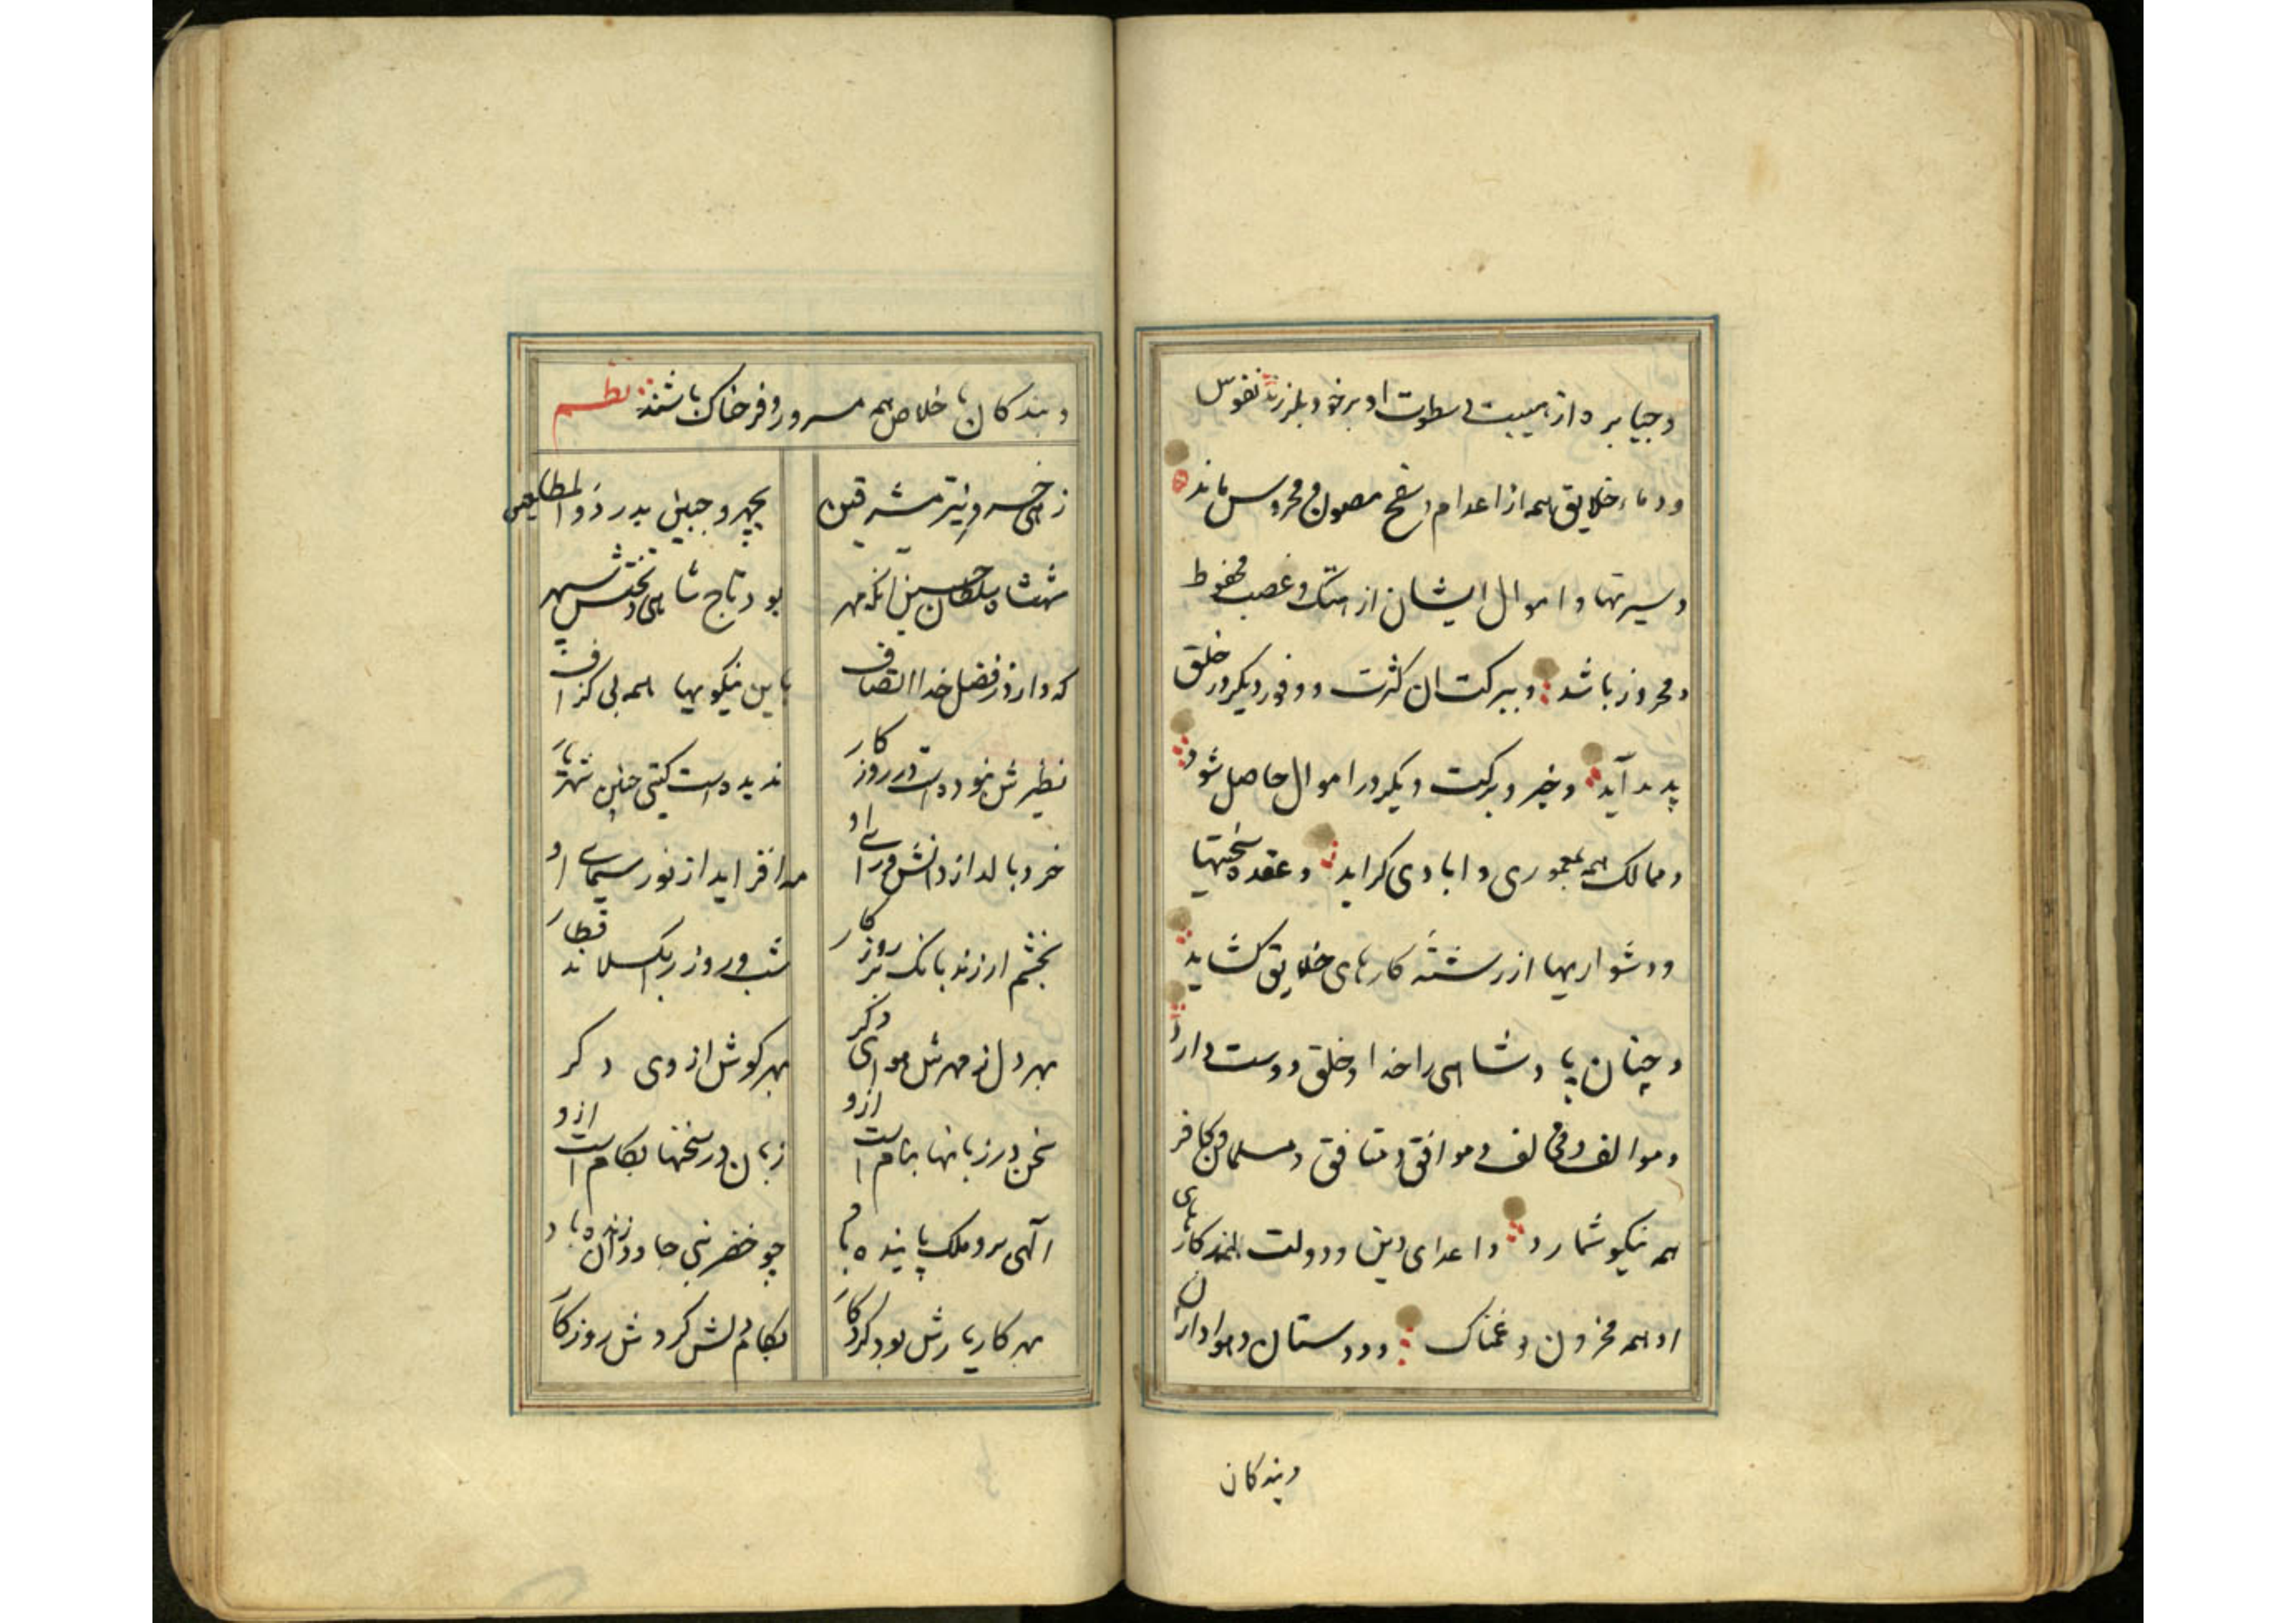 و جبابره از هیبت و سطوت او بر خود بلرزند نفوس
و دماء خلایق همه از اعدام و سفح مصون و محروس ماند
و سیرتها و اموال ایشان از هتک و غصب محفوظ
و محروز باشد و ببرکت ان کثرت و وفور دیگر در خلق
پدید آید و خیر و برکت دیگر در اموال حاصل شود
و ممالک همه بمعموری و ابادی کراید و عقده سختیها
و دشواریها از رشته کارهای خلایق کشاید
و چنان پادشاهی را خدا و خلق دوست دارد
و موالف و مخالف و موافق و منافق و مسلمان و کافر
همه نیکو شمارد و اعدای دین و دولت کارهای
او همه محزون و غمناک و دوستان و هواداران
و بندکان
و بندکان با خلاص همه مسرور و فرحناک باشند نظم
زهی خسرو نیّر مشرقین بچهر و جبین بدر ذو المطلعین
شهنشاه سلطان حسین انکه مهر بود تاج شاهی و تختش سپهر
که دارد ز فضل خدا اتصاف باین نیکویها همه بی کزاف
نظیرش نبوده است در روزکار ندیده است کیتی چنین شهریار
خرد بالد از دانش و رای او مه افزاید از نور سیمای او
بخشم ار زند بانک بر روزکار شب و روز را بکسلاند قطار
بهر دل ز مهرش هوای دکر بهر کوش از وی دکر
سخن در زبانها بنام است ازو زبان در سخنها بکام است ازو
الهی سر و ملک پاینده باد چو خضر نبی جاودان زنده باد
بهر کار یارش بود کردکار بکام دلش کردش روزکار